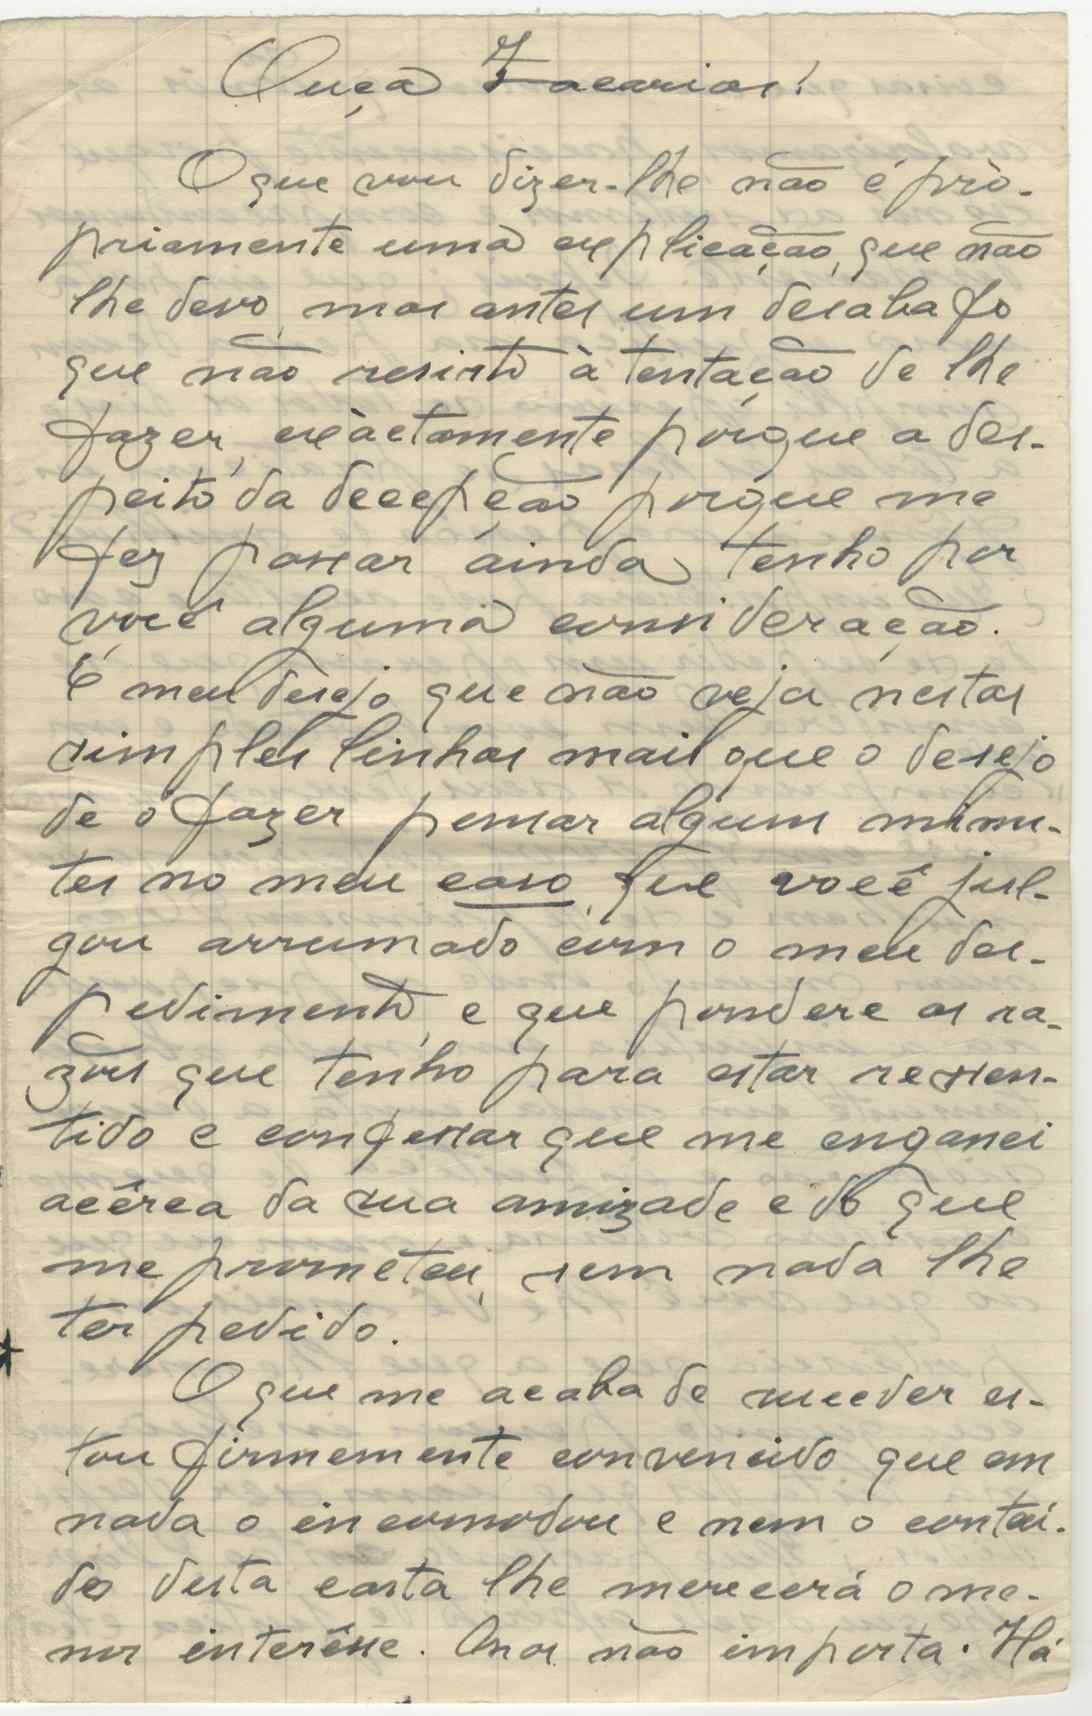 Ouça Zacarias!
O que vou dizer-lhe não é prò-
priamente uma explicação, que não
lhe devo, mas antes um desabafo
que não resisto à tentação de lhe
fazer, exàctamente porque a des-
peito da decepção porque me
fez passar ainda tenho por
você alguma consideração.
É meu desejo que não veja nestas
simples linhas mais que o desejo
de o fazer pensar alguns minu-
tos no meu caso, que você jul-
gou arrumado com o meu des-
pedimento, e que pondere as ra-
zões que tenho para estar ressen-
tido e confessar que me enganei
acêrca da sua amizade e do que
me prometeu, sem nada lhe
ter pedido.
O que me acaba de suceder es-
tou firmemente convencido que em
nada o incomodou e nem o conteú-
do desta carta lhe merecerá o me-
nor interêsse. Mas não importa. Há